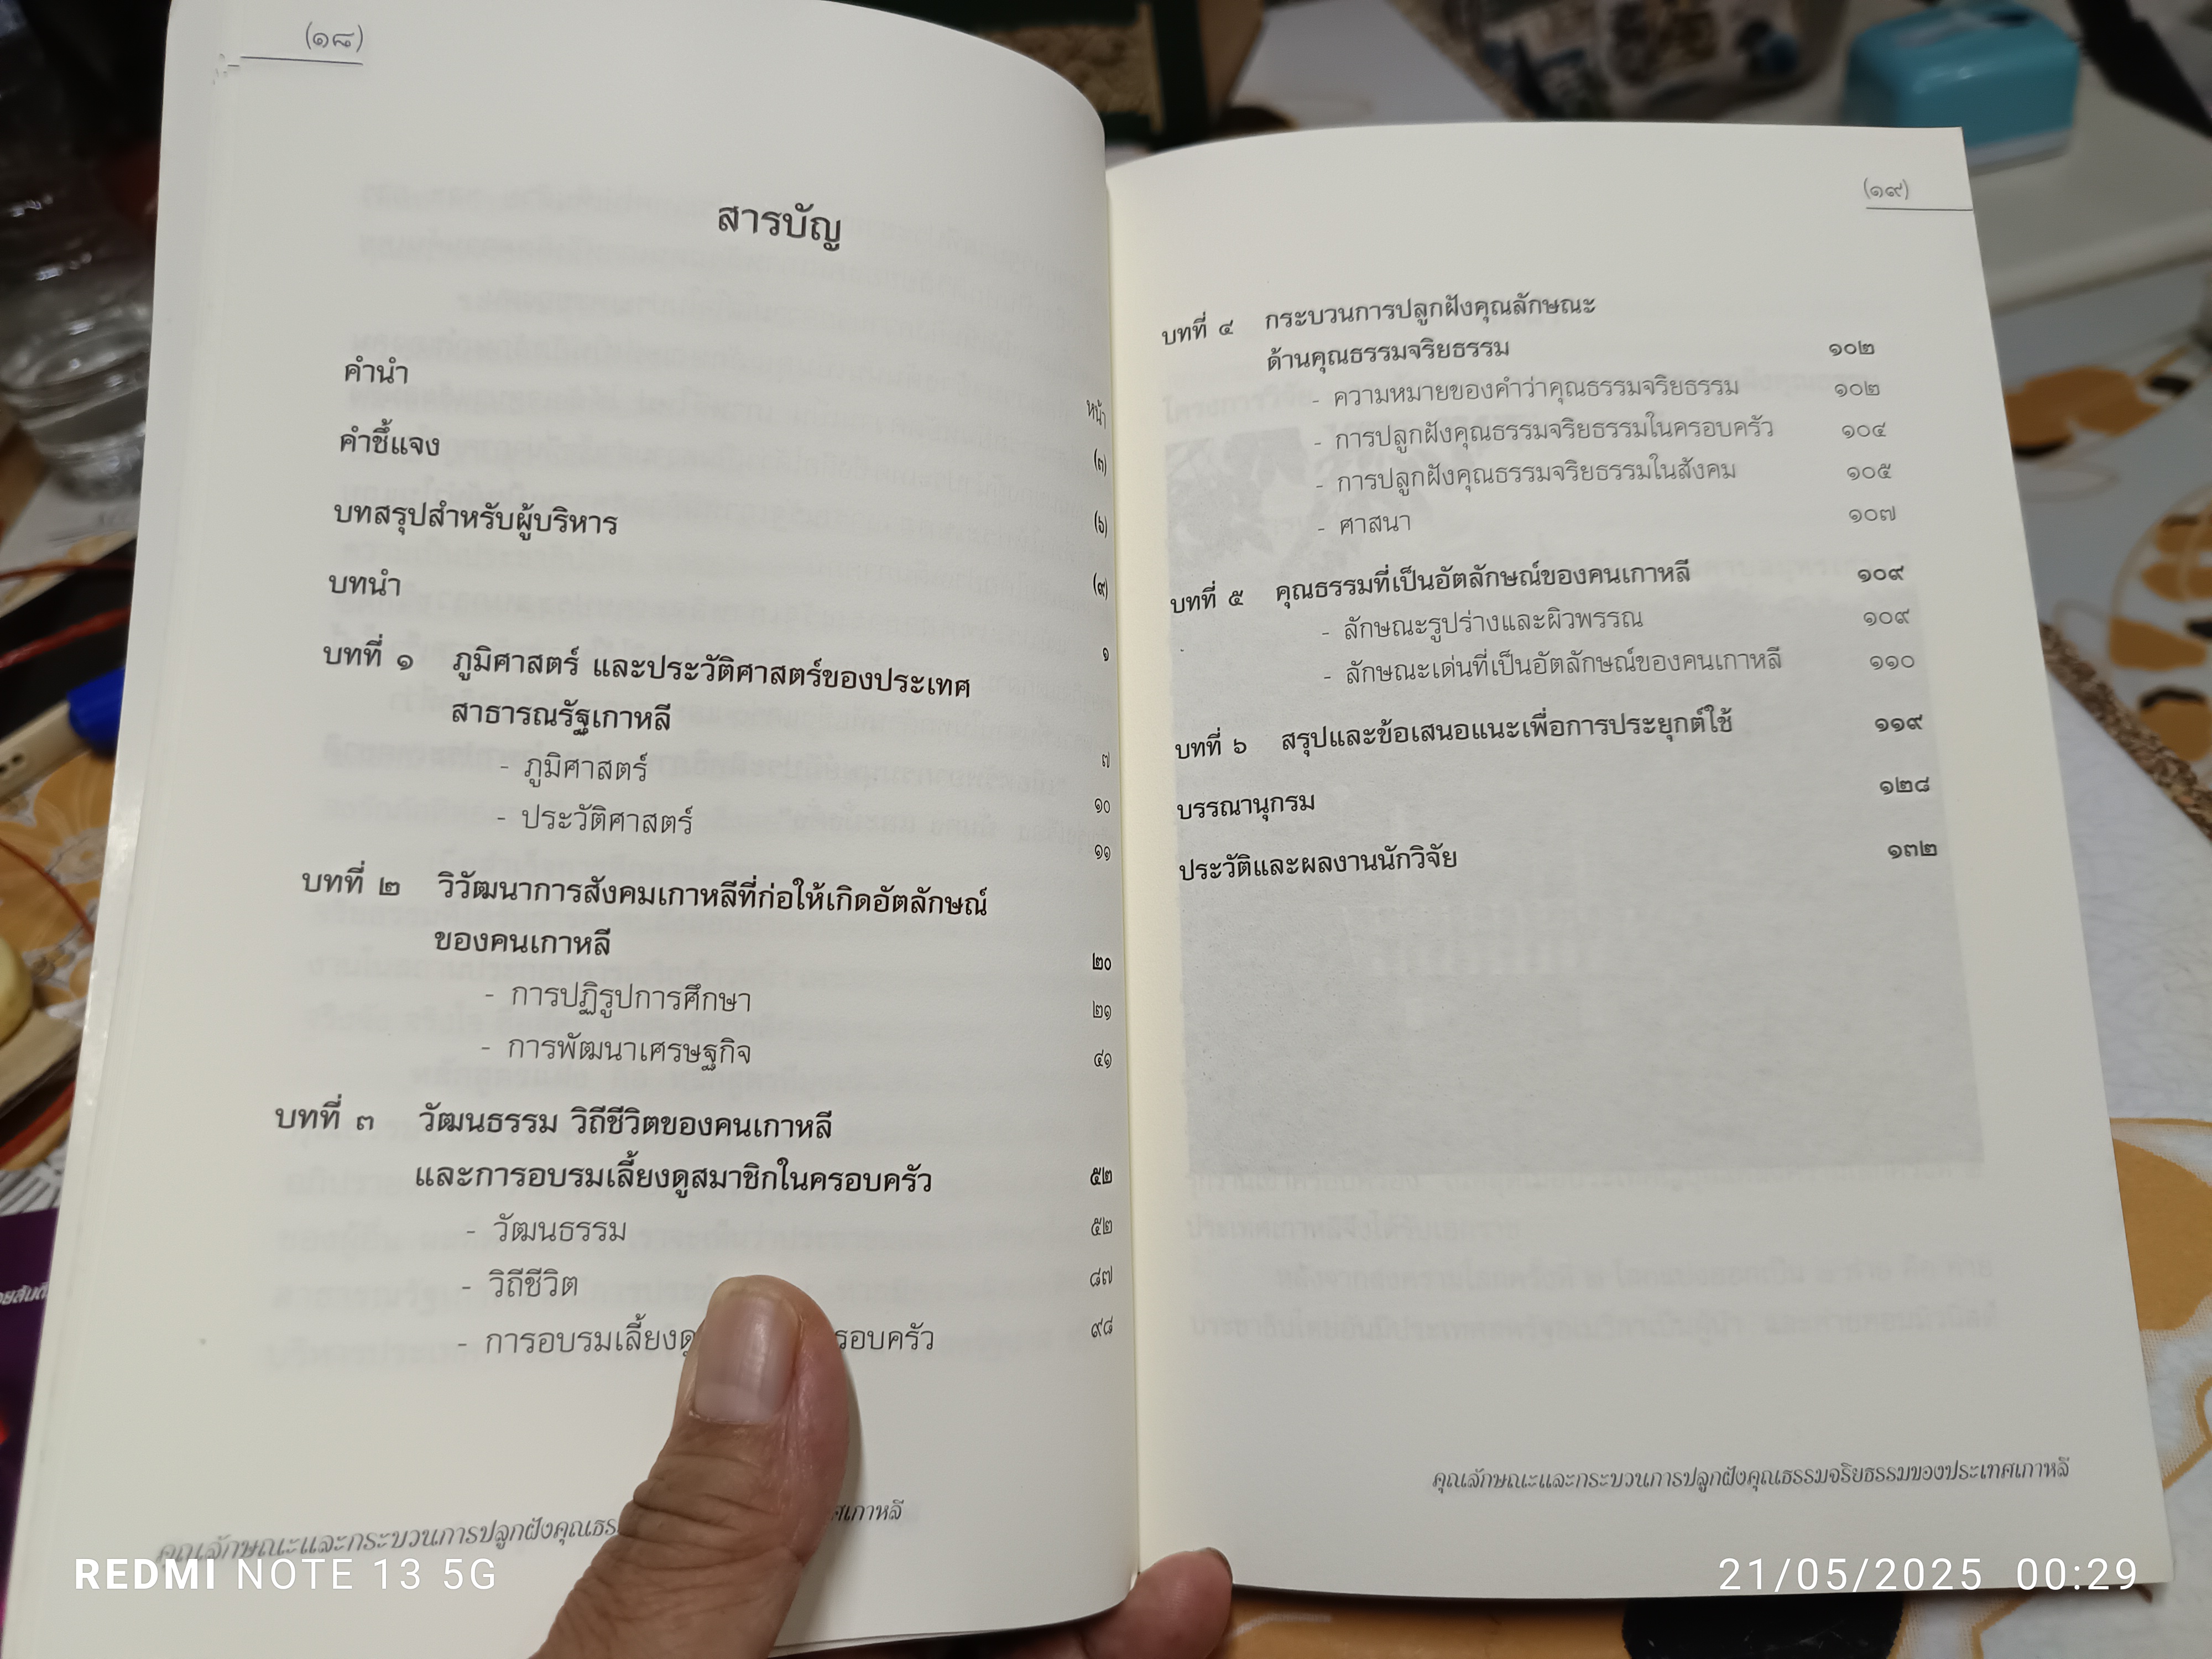 (๑๘)
สารบัญ
หน้า
คำนำ (๓)
คำชี้แจง (๖)
บทสรุปสำหรับผู้บริหาร (๙)
บทนำ ๑
บทที่ ๑ ภูมิศาสตร์ และประวัติศาสตร์ของประเทศ
สาธารณรัฐเกาหลี ๗
- ภูมิศาสตร์ ๑๐
- ประวัติศาสตร์ ๑๑
บทที่ ๒ วิวัฒนาการสังคมเกาหลีที่ก่อให้เกิดอัตลักษณ์
ของคนเกาหลี ๒๐
- การปฏิรูปการศึกษา ๒๑
- การพัฒนาเศรษฐกิจ ๔๑
บทที่ ๓ วัฒนธรรม วิถีชีวิตของคนเกาหลี
และการอบรมเลี้ยงดูสมาชิกในครอบครัว ๕๒
- วัฒนธรรม ๕๒
- วิถีชีวิต ๘๗
- การอบรมเลี้ยงดู รอบครัว ๙๘
คุณลักษณะและกระบวนการปลูกฝังคุณธร ศเกาหลี
(๑๙)
บทที่ ๔ กระบวนการปลูกฝังคุณลักษณะ
ด้านคุณธรรมจริยธรรม ๑๐๒
- ความหมายของคำว่าคุณธรรมจริยธรรม ๑๐๒
- การปลูกฝังคุณธรรมจริยธรรมในครอบครัว ๑๐๔
- การปลูกฝังคุณธรรมจริยธรรมในสังคม ๑๐๕
- ศาสนา ๑๐๗
บทที่ ๕ คุณธรรมที่เป็นอัตลักษณ์ของคนเกาหลี ๑๐๙
- ลักษณะรูปร่างและผิวพรรณ ๑๐๙
- ลักษณะเด่นที่เป็นอัตลักษณ์ของคนเกาหลี ๑๑๐
บทที่ ๖ สรุปและข้อเสนอแนะเพื่อการประยุกต์ใช้ ๑๑๙
บรรณานุกรม ๑๒๘
ประวัติและผลงานนักวิจัย ๑๓๒
คุณลักษณะและกระบวนการปลูกฝังคุณธรรมจริยธรรมของประเทศเกาหลี
REDMI NOTE 13 5G
21/05/2025 00:29